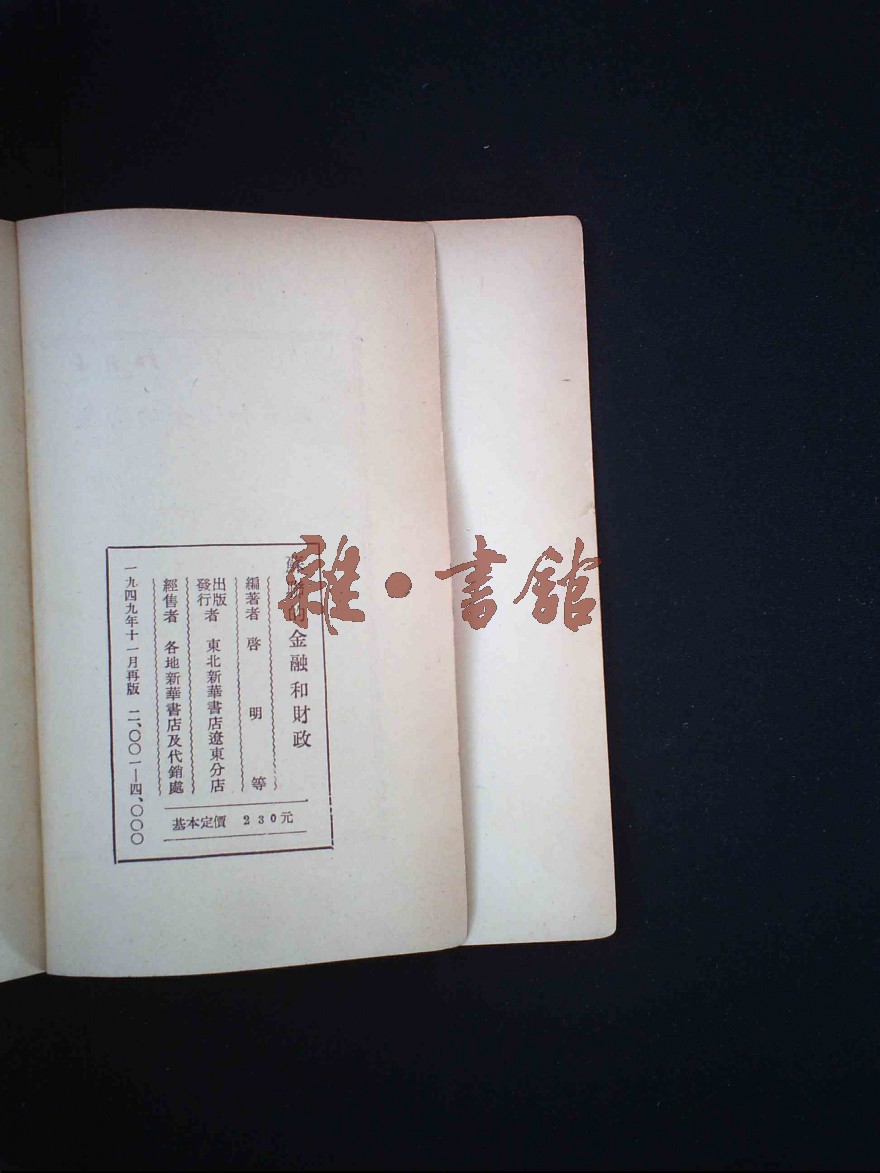 蘇聯的金融和財政
編著者 啓明等
出版者
發行者 東北新華書店遼東分店
經售者 各地新華書店及代銷處
一九四九年十一月再版 二、〇〇一—四、〇〇〇
基本定價 230元
雜·書館